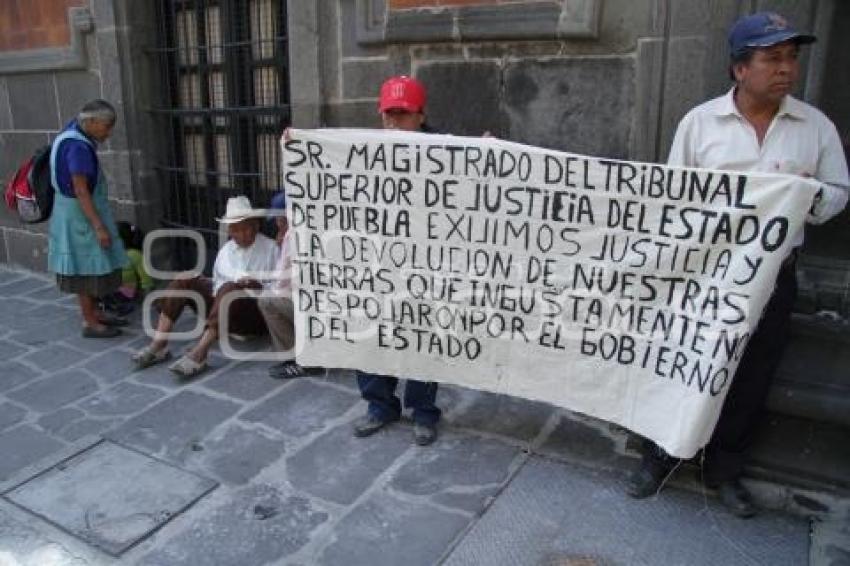 SR. MAGISTRADO DEL TRIBUNAL
SUPERIOR DE JUSTICIA DEL ESTADO
DE PUEBLA EXIJIMOS JUSTICIA Y
LA DEVOLUCION DE NUESTRAS
TIERRAS QUE INGUSTAMENTE NO
DESPOJARON POR EL GOBIERNO
DEL ESTADO